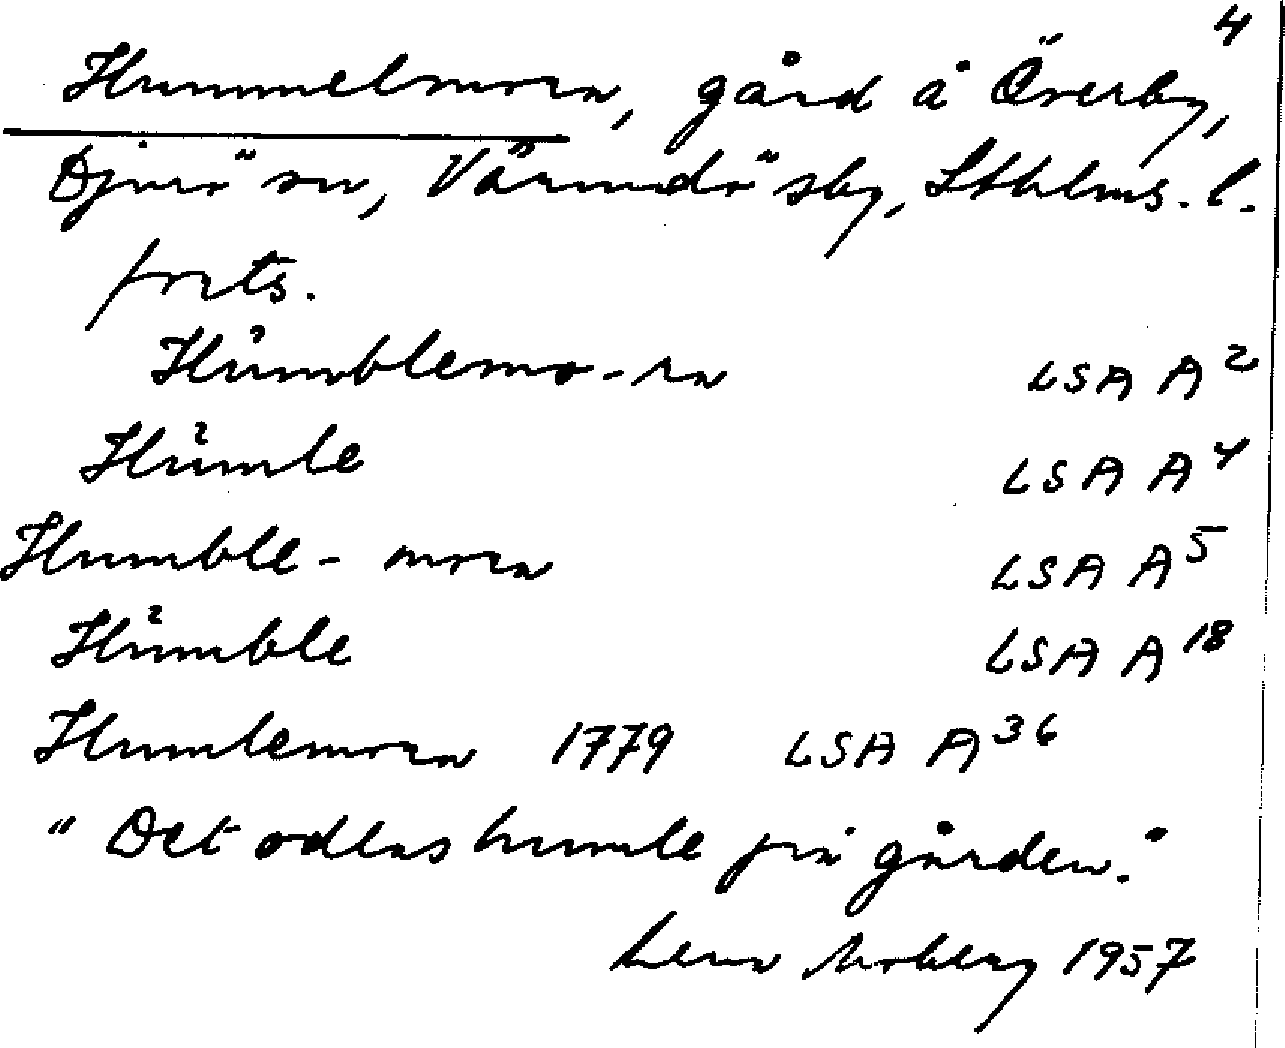 4
Hummelmora, gård å Överby,
Djurö sn, Värmdö sky, Sthlms. l.
forts.
Humblemo-ra LSA A²
Humle LSA A⁴
Humble- mora LSA A⁵
Humble LSA A¹⁸
Humlemora 1779 LSA A³⁶
"Det odlas humle på gården."
Lena Moberg 1957